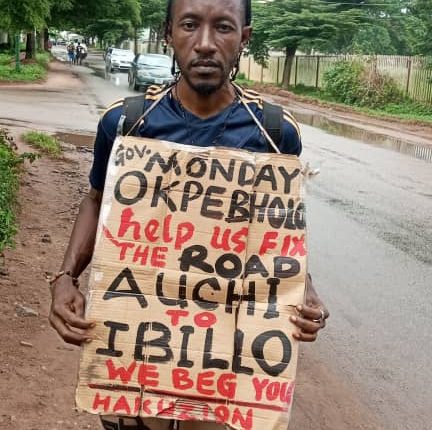 GOV. MONDAY
OKPEBHOLO
help us FIX
THE ROAD
AUCHI
TO
IBILLO
WE BEG YOU
HAKUZION